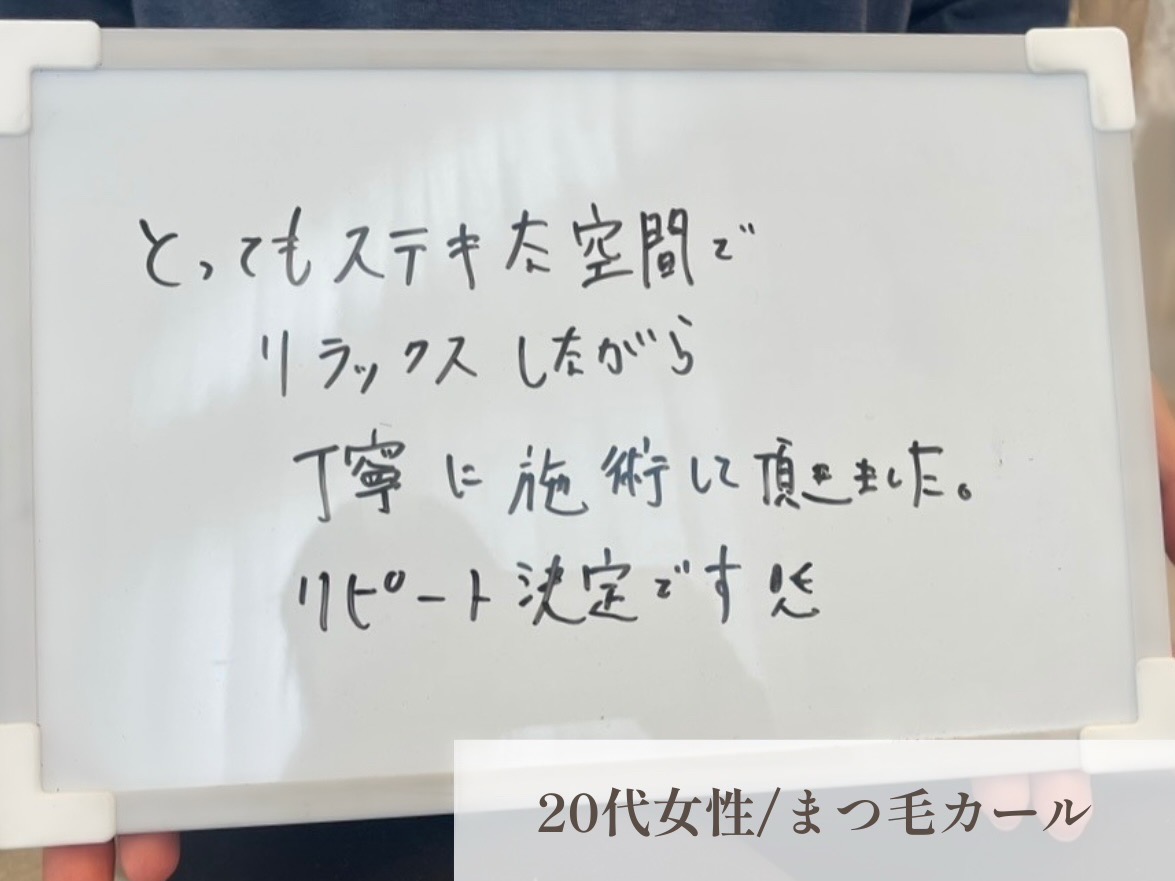 とってもステキな空間で
リラックスしながら
丁寧に施術して頂きました。
リピート決定です
20代女性/まつ毛カール